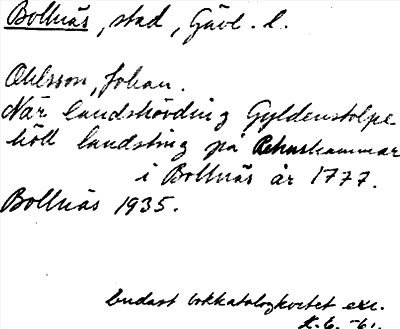 Bollnäs, stad, Gävl. l.
Ohlsson, Johan.
När landshövding Gyldenstolpe
höll landsting på Rehnshammar
i Bollnäs år 1777.
Bollnäs 1935.
Endast lokkatalogkortet exc.
K. G. -61.